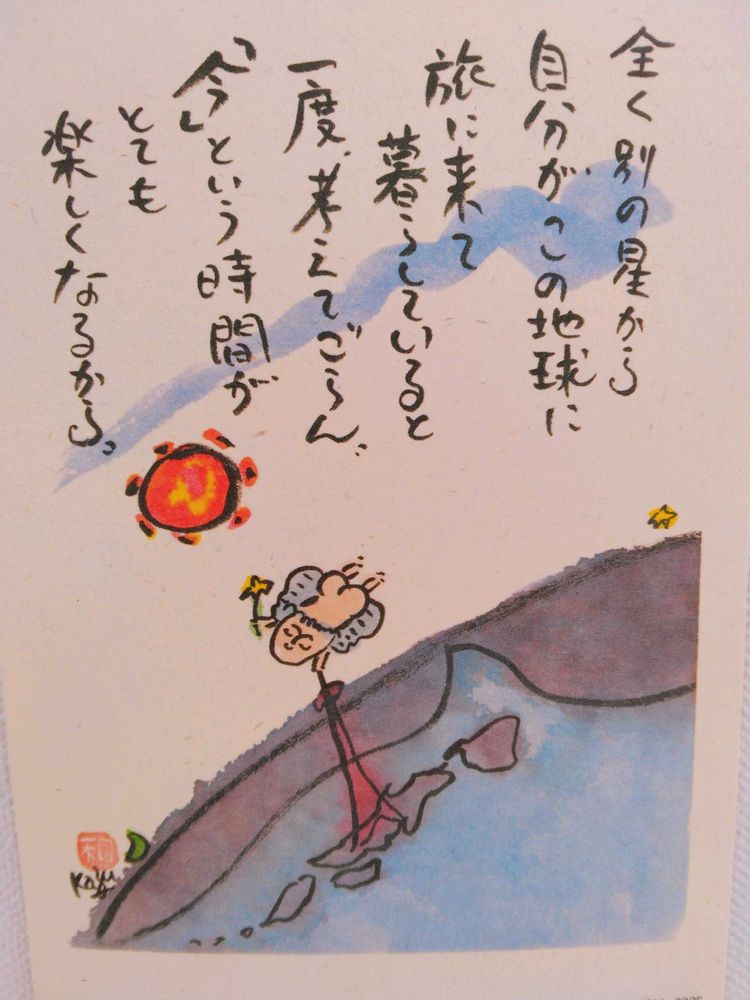 全く別の星から
自分がこの地球に
旅に来て
暮らしていると
一度、考えてごらん、
「今」という時間が
とても
楽しくなるから。